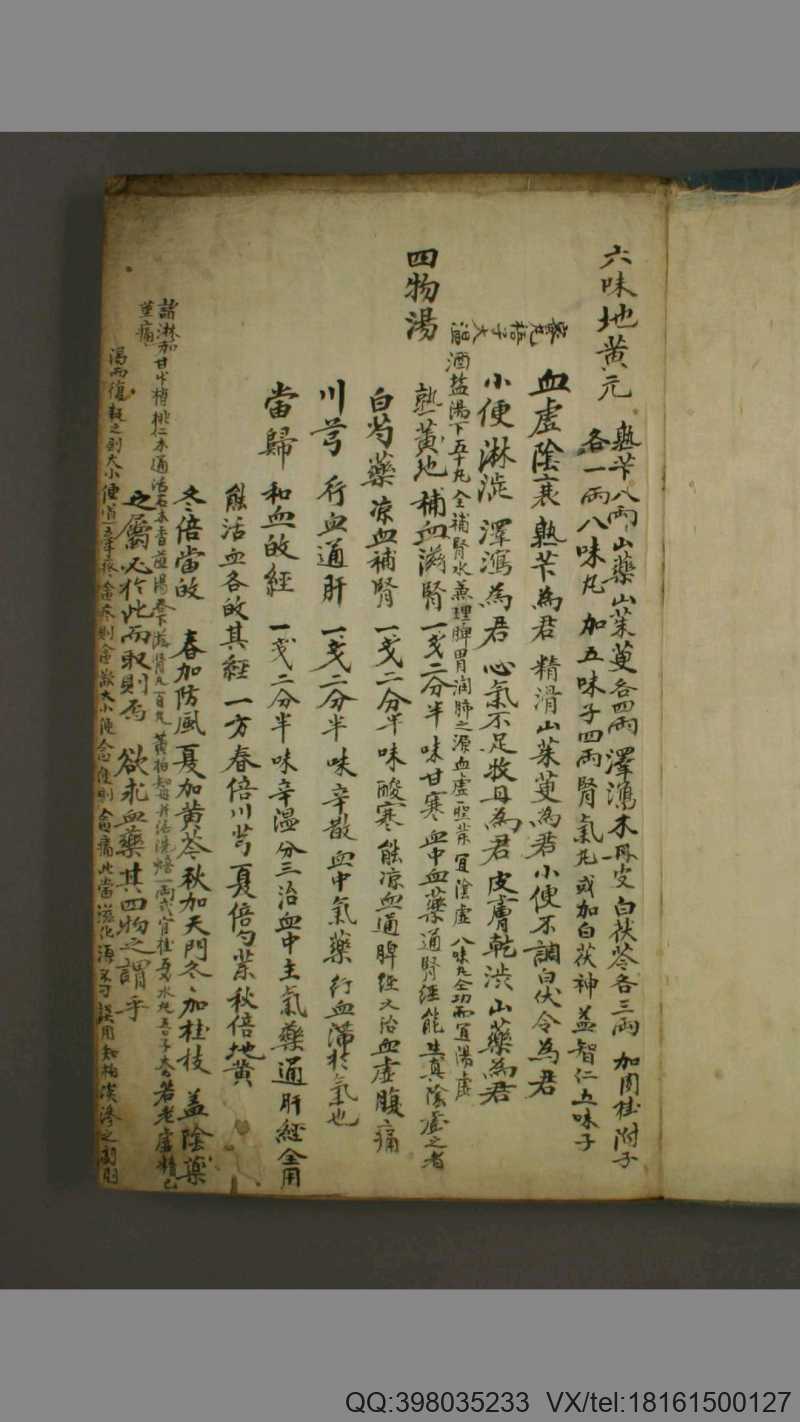 六味地黃元 熟芐八兩山藥山茱萸各四兩澤瀉木丹皮白茯苓各三兩 加肉桂附子
各一兩八味丸 加五味子四兩腎氣丸 或加白茯神益智仁五味子
血虛陰衰熟芐為君 精滑山茱萸為君 小便不調白伏令為君
小便淋澁澤瀉為君 心氣不足牧丹為君 皮膚乾渋山藥為君
蜜丸梧子大溫
酒盐湯下五十丸 全補腎水兼理脾胃潤肺之源血虛 宜陰虛 八味丸全功而宜陽虛
四物湯
熟黃地補血滋腎 一戔二分半味甘寒血中血藥通腎經能生真陰虛之者
白芍藥凉血補腎 一戔二分半味酸寒能凉血通脾經又治血虛腹痛
川芎 行血通肝 一戔二分半味辛散血中氣藥行血滯於氣也
當歸 和血的經 一戔二分半味辛溫分三治血中主氣藥通肝經全用
能活血各的其經 一方春倍川芎夏倍芍藥秋倍地黃
冬倍當的 春加防風夏加黃芩秋加天門冬冬加桂枝 盖陰藥
之屬必於此而取則焉 欲求血藥其四物之謂乎
諸淋加甘 桃仁木通滑石木香 湯 滋腎丸百丸 黃柏知母并酒洗焙一兩 官桂 水丸 子大 若老虛精已
莖痛
渴而復 之則大小便 大小便念 則 痛此當滋化源不可誤用知柏淡滲之劑